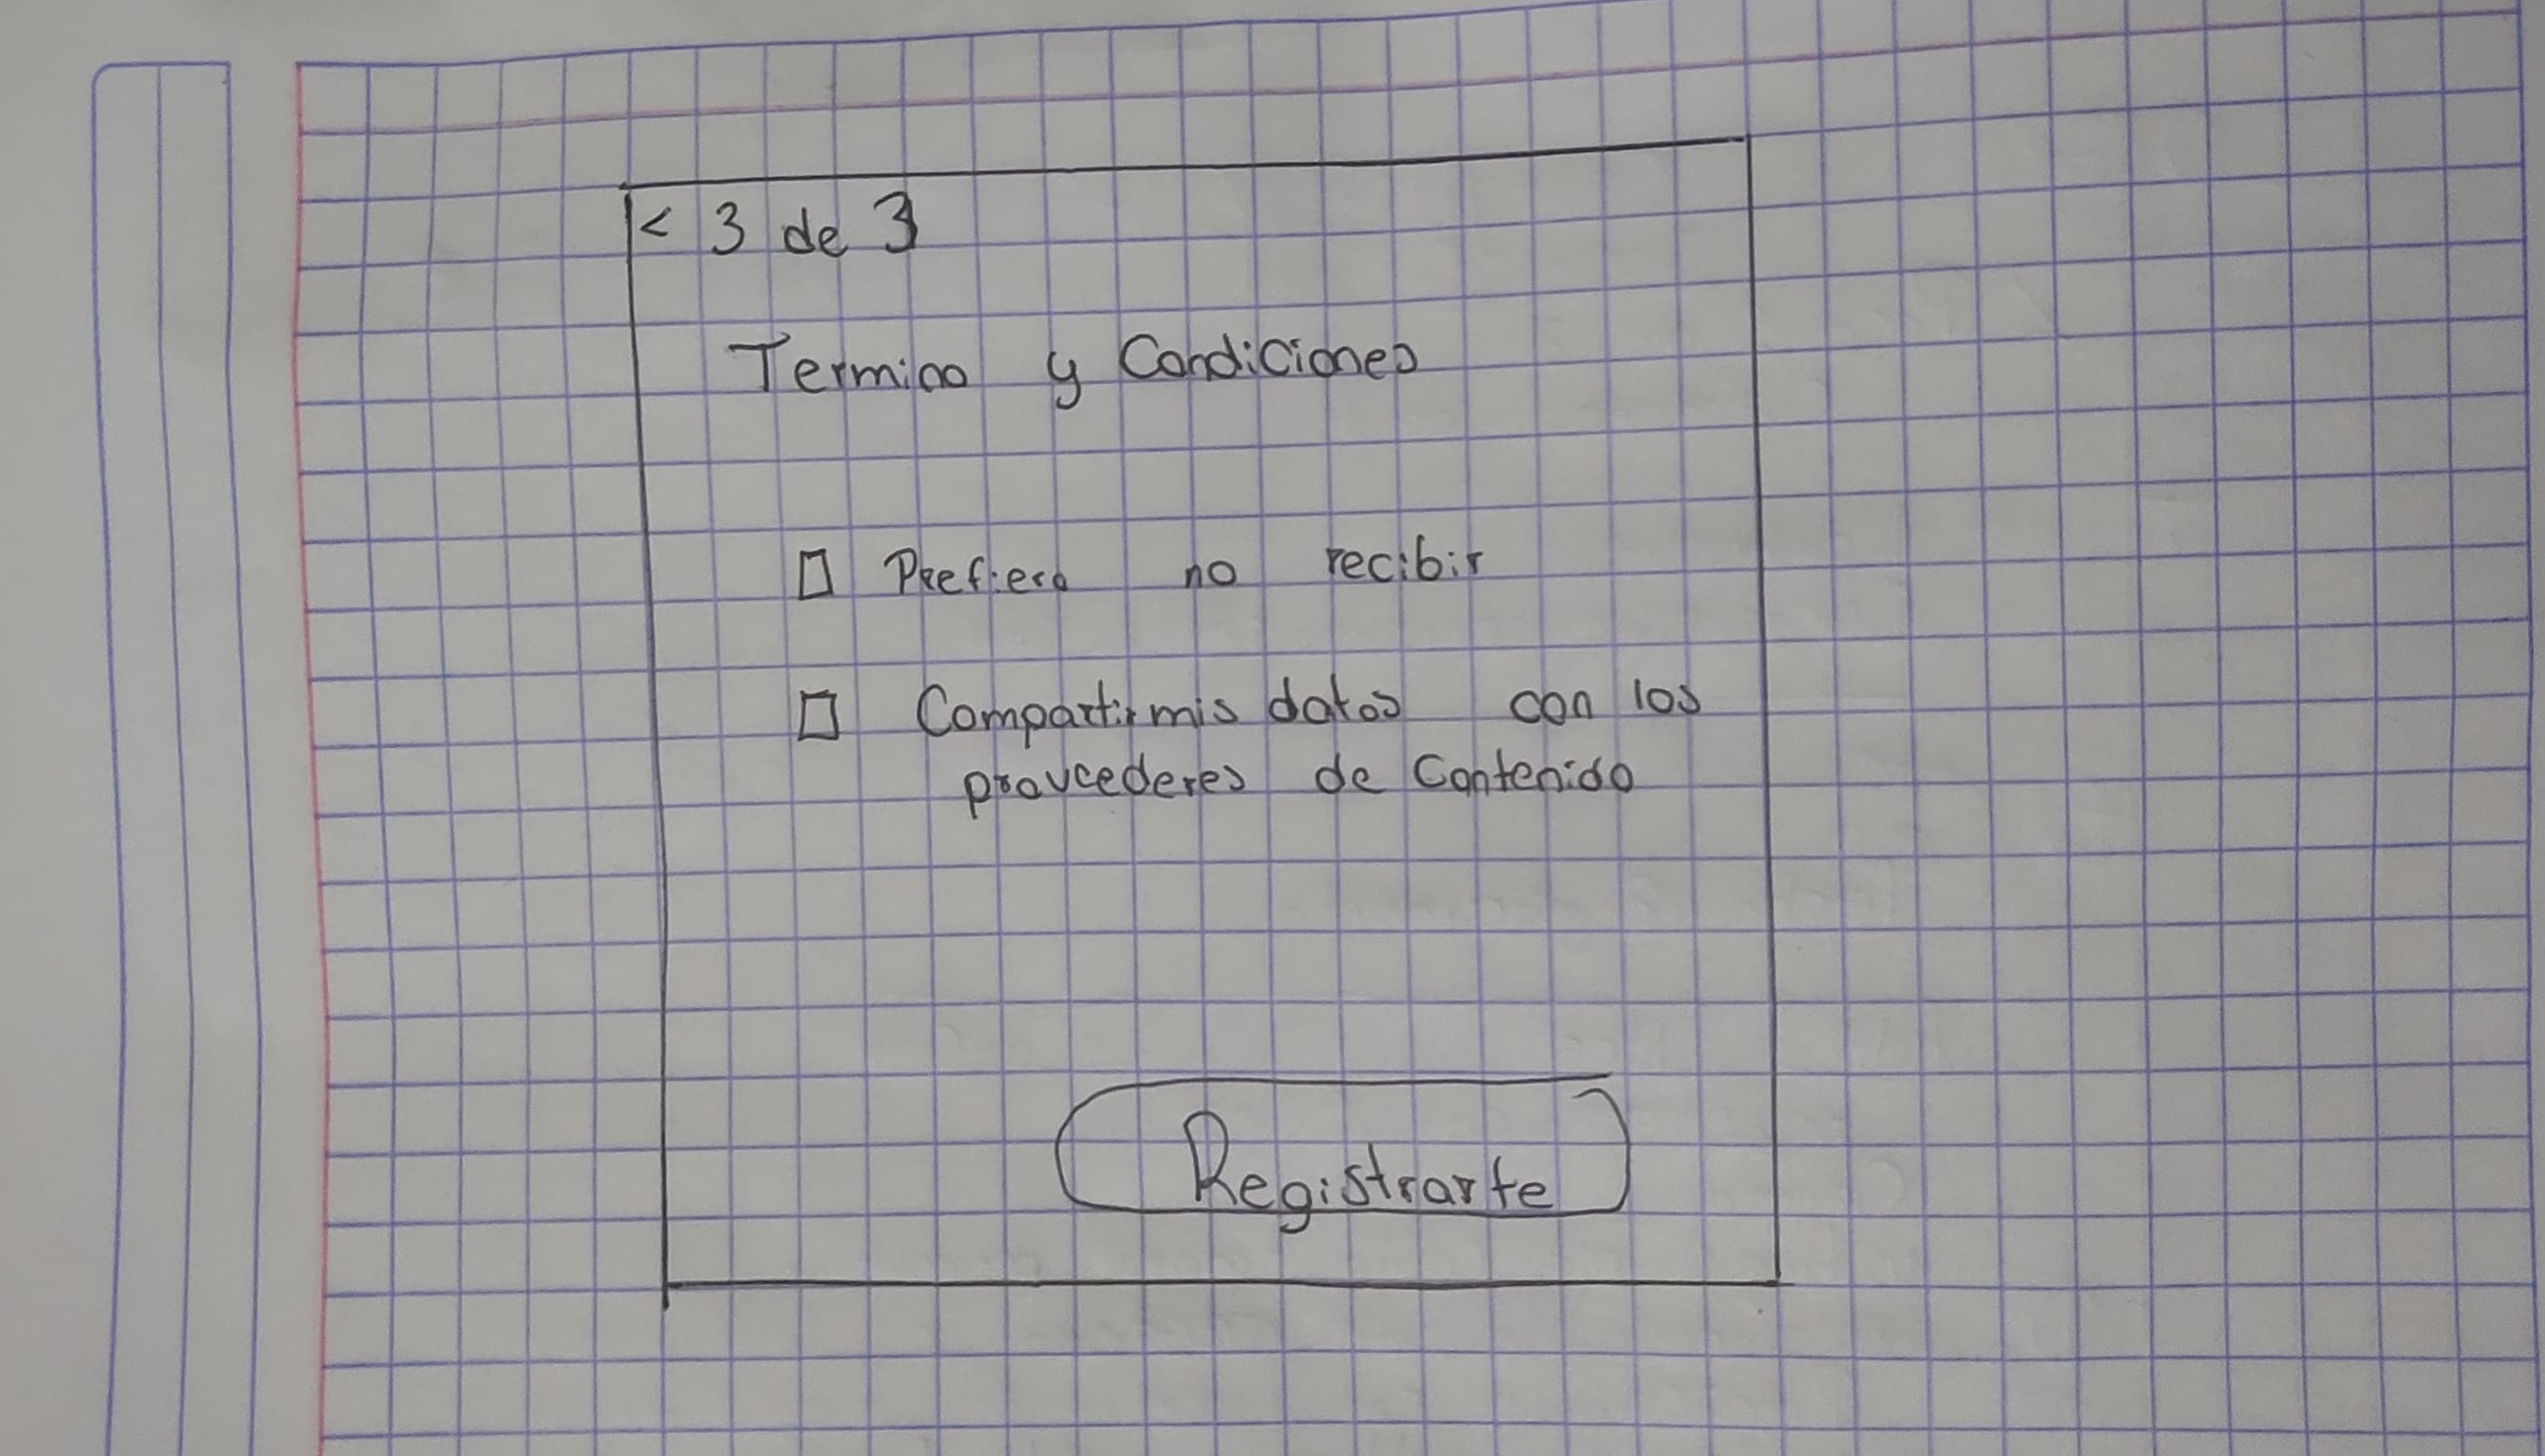 < 3 de 3
Termino y Condiciones
Prefiero no recibir
Compartir mis datos con los
provcederes de Contenido
Registrarte